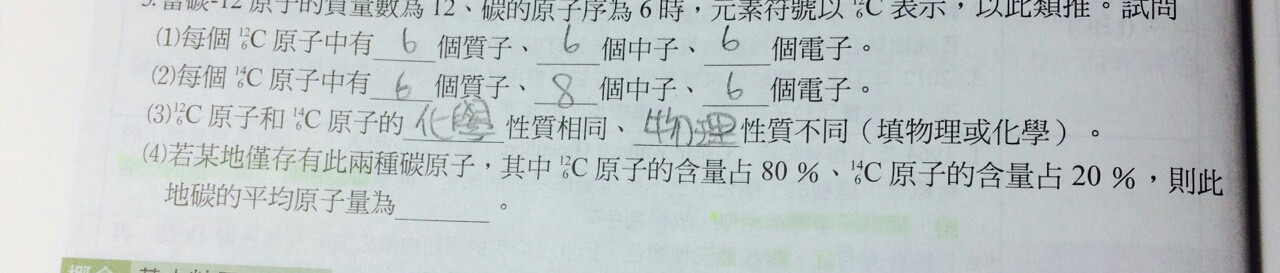 5. 當碳-12 原子的質量數為 12、碳的原子序為 6 時，元素符號以 ¹²₆C 表示，以此類推。試問
(1)每個 ¹²₆C 原子中有 6 個質子、 6 個中子、 6 個電子。
(2)每個 ¹⁴₆C 原子中有 6 個質子、 8 個中子、 6 個電子。
(3)¹²₆C 原子和 ¹⁴₆C 原子的 化學 性質相同、 物理 性質不同（填物理或化學）。
(4)若某地僅存有此兩種碳原子，其中 ¹²₆C 原子的含量占 80 %、¹⁴₆C 原子的含量占 20 %，則此
地碳的平均原子量為________。